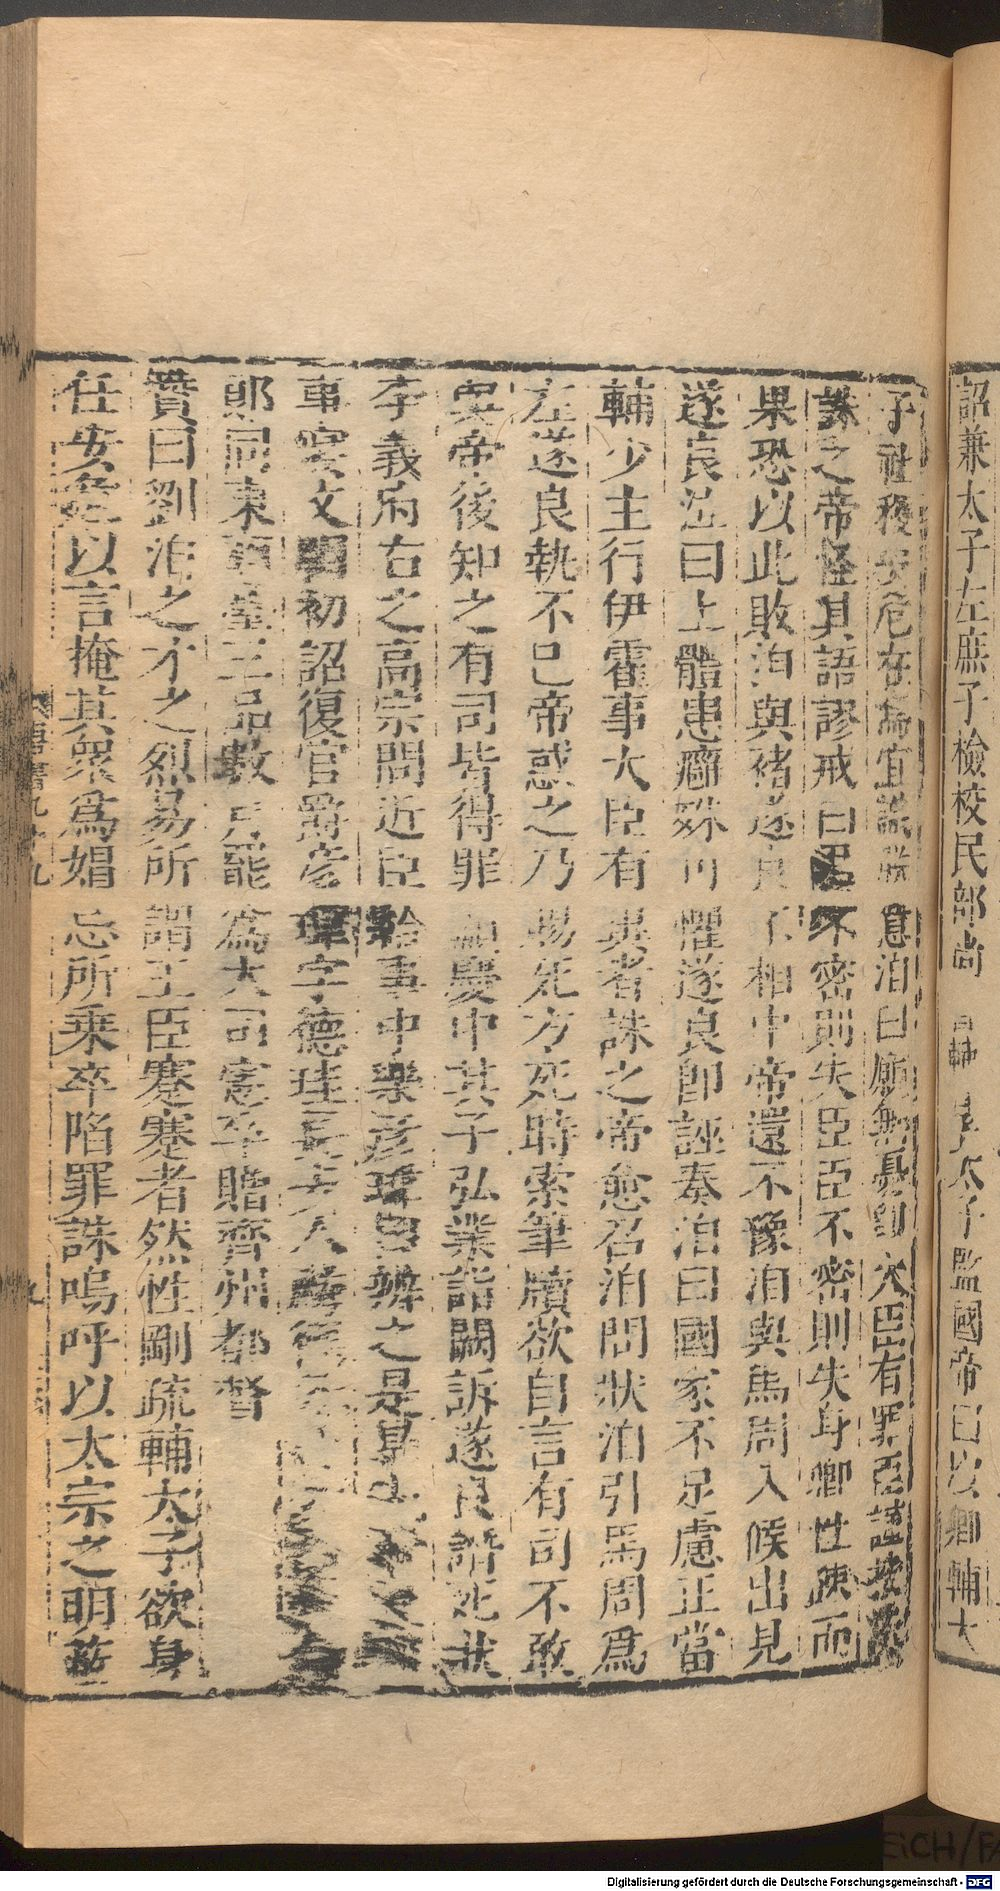 詔兼太子左庶子檢校民部尚 輔皇太子監國帝曰以卿輔太
子社稷安危在焉宜識朕意洎曰願無憂即大臣有罪臣謹按法
誅之帝怪其語謬戒曰君不密則失臣臣不密則失身卿性疎而
果恐以此敗洎與褚遂良不相中帝還不豫洎與馬周入候出見
遂良泣曰上體患癰殊可懼遂良即誣奏洎曰國家不足慮正當
輔少主行伊霍事大臣有異者誅之帝愈召洎問狀洎引馬周爲
左遂良執不已帝惑之乃賜死方死時索筆牘欲自言有司不敢
與帝後知之有司皆得罪顯慶中其子弘業詣闕訴遂良譖死狀
李義府右之高宗問近臣給事中樂彦瑋曰辨之是暴
事寢文明初詔復官爵彦瑋字德珪長安人
郎同東西臺三品數月罷爲大司憲卒贈齊州都督
贊曰劉洎之才之烈易所謂王臣蹇蹇者然性剛疏輔太子欲身
任安危以言掩其衆爲媢忌所乗卒陷罪誅嗚呼以太宗之明蔽
唐書九十九
九
Digitalisierung gefördert durch die Deutsche Forschungsgemeinschaft - DFG